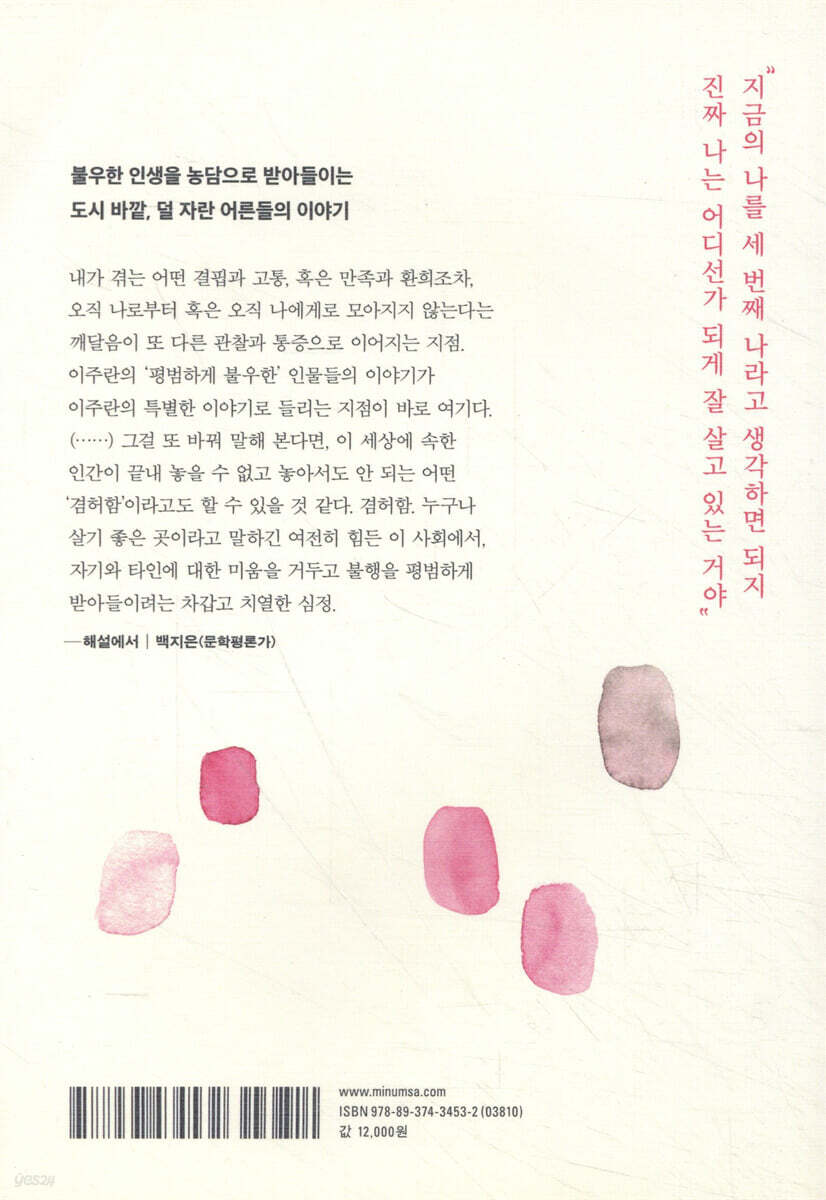 “지금의 나를 세 번째 나라고 생각하면 되지
진짜 나는 어디선가 되게 잘 살고 있는 거야”
불우한 인생을 농담으로 받아들이는
도시 바깥, 덜 자란 어른들의 이야기
내가 겪는 어떤 결핍과 고통, 혹은 만족과 환희조차,
오직 나로부터 혹은 오직 나에게로 모아지지 않는다는
깨달음이 또 다른 관찰과 통증으로 이어지는 지점.
이주란의 ‘평범하게 불우한’ 인물들의 이야기가
이주란의 특별한 이야기로 들리는 지점이 바로 여기다.
(……) 그걸 또 바꿔 말해 본다면, 이 세상에 속한
인간이 끝내 놓을 수 없고 놓아서도 안 되는 어떤
‘겸허함’이라고도 할 수 있을 것 같다. 겸허함. 누구나
살기 좋은 곳이라고 말하긴 여전히 힘든 이 사회에서,
자기와 타인에 대한 미움을 거두고 불행을 평범하게
받아들이려는 차갑고 치열한 심정.
—해설에서 | 백지은(문학평론가)
www.minumsa.com
ISBN 978-89-374-3453-2 (03810)
값 12,000원
yes24